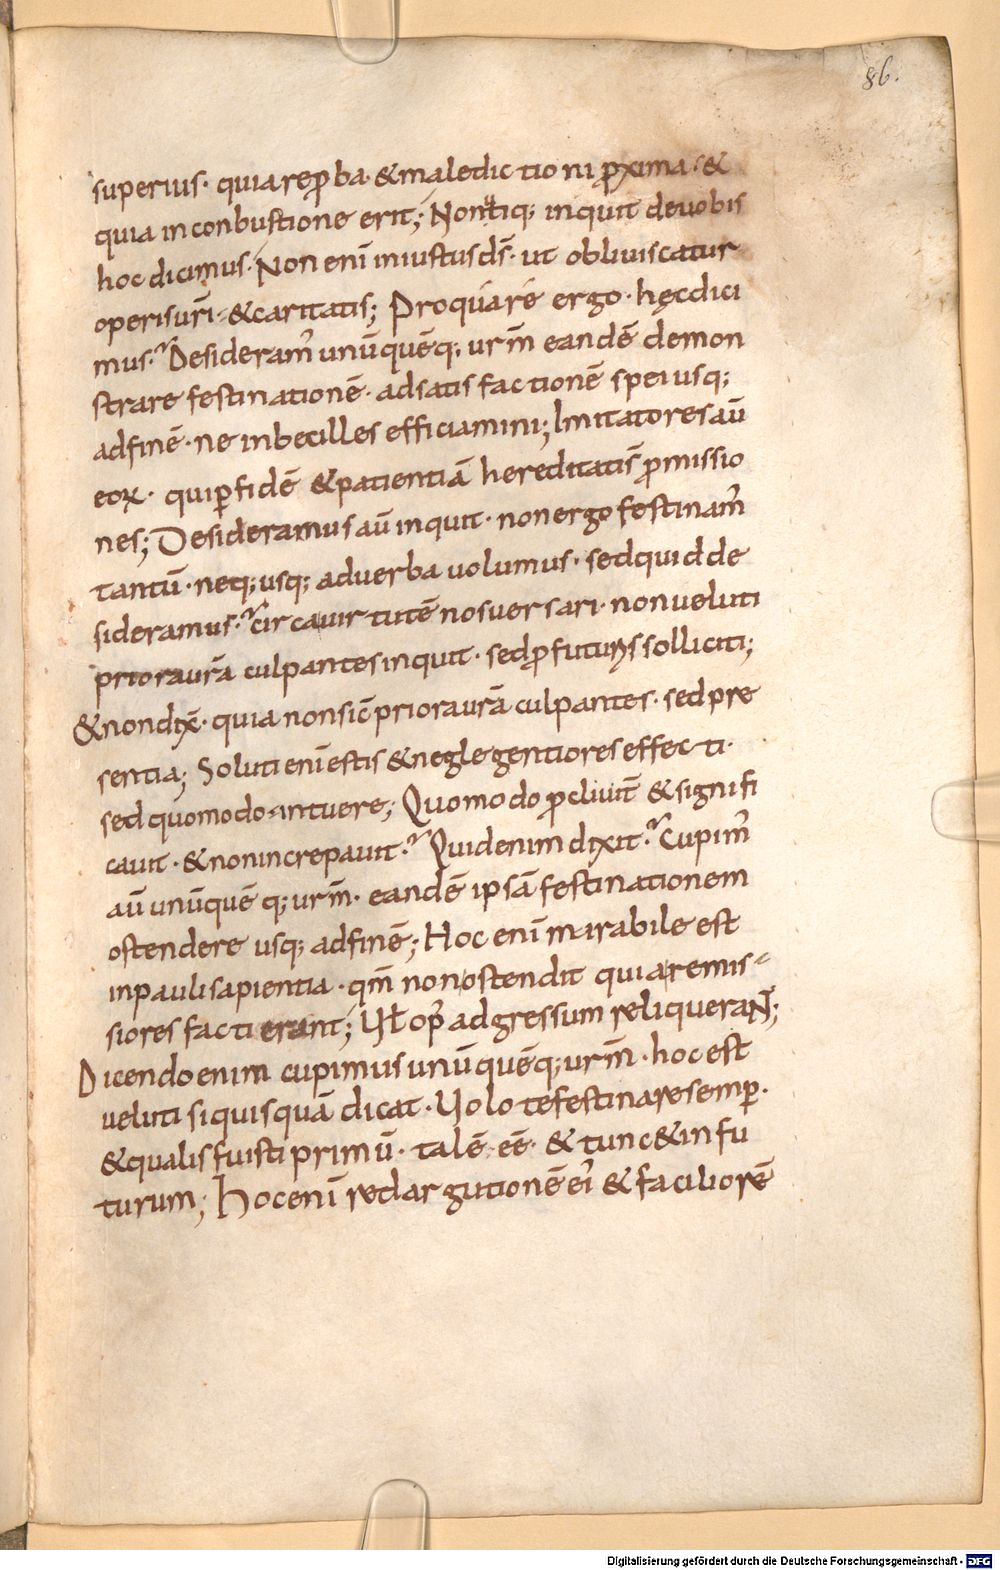 86.
superius· quia rep̱ba· & maledictioni p̱xima·&
quia in conbustione erit; Non itiq; inquit de uobis
hoc dicimus· Non enī iniustus d̄s· ut obliuiscatur
operis ur̄i· & caritatis; Pro quare ergo· hęc dici
mus· Desideram̕ unūquēq; ur̄m eandē demon
strare festinationē· ad satisfactionē spei usq;
ad finē· ne inbecilles efficiamini; Imitatores aū
eoꝝ· qui ꝑ fidē & patientiā hereditatis̄ ꝓmissio
nes; Desideramus aū inquit· non ergo festinam̕
tantū· neq; usq; ad uerba uolumus· sed quid de
sideramus· circa uirtutē nos uersari· non ueluti
priora ur̄a culpantes inquit· sed ꝓ futuris solliciti;
& non dix̄· quia non sic̄ priora ur̄a culpantes· sed pre
sentia; Soluti enī estis & neglegentiores effecti·
sed quomodo· intuere; Quomodo ꝓcliuit̄ & signifi
cauit· & non increpauit· Quid enim dixit· Cupim̕
aū unūquē q; ur̄m· eandē ipsā festinationem
ostendere usq; ad finē; Hoc enī mirabile est
in pauli sapientia· qm̄ non ostendit quia remis-
siores facti erant; Ul̄ op̕ adgressum reliqueraNT;
Dicendo enim cupimus unūquēq; ur̄m· hoc est
ueluti si quisquā dicat· Uolo te festinare semꝑ·
& qualis fuisti primū· talē eē· & tunc & in fu
turum; Hoc enī redargutionē ei̕ & faciliorē
Digitalisierung gefördert durch die Deutsche Forschungsgemeinschaft - DFG